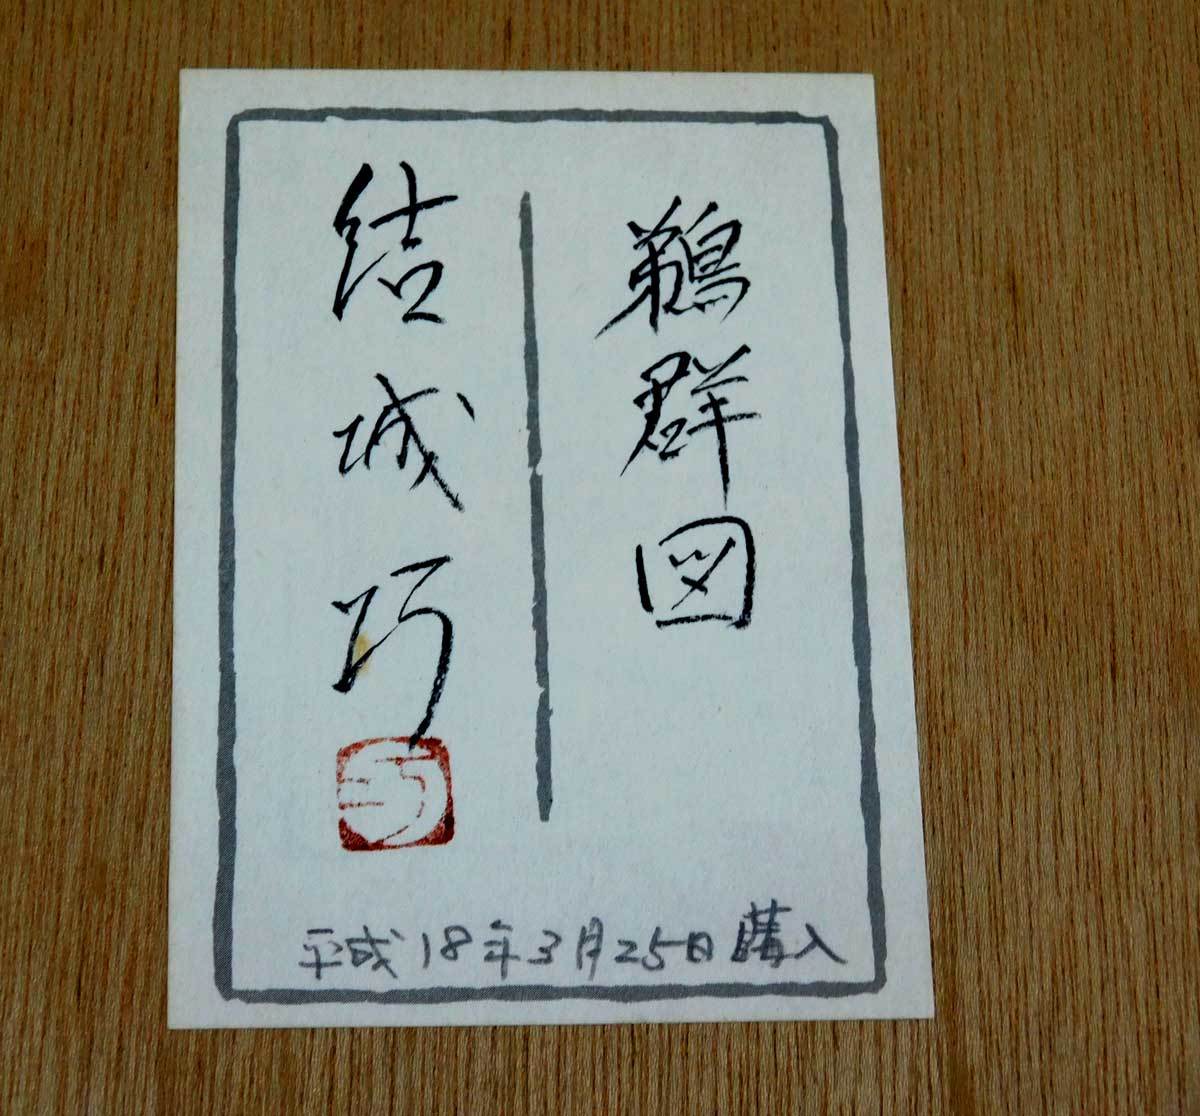 鵜群図
結城巧
平成18年3月25日購入